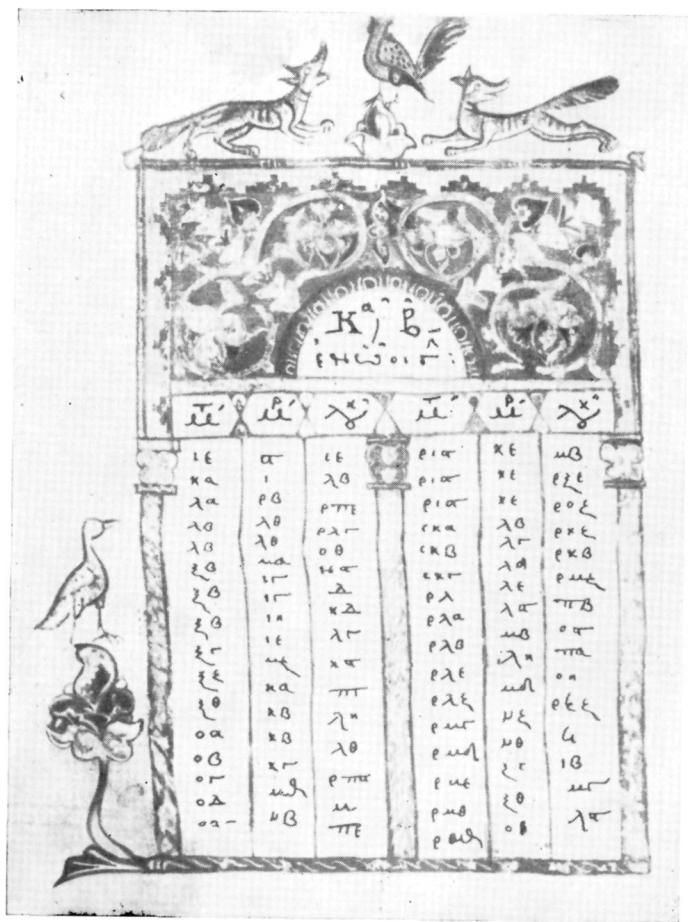 Κα Β
ἐν ᾧ οἱ γ
Μτ Μρ Λκ Μτ Μρ Λκ
ιε ϛ ιε ριϛ κε μβ
κα ι λβ ριϛ κε ρξε
λα ρβ ρπε ριϛ κε ροζ
λβ λθ ρλγ ρκα λβ ρκζ
λβ λθ οθ ρκβ λγ ρκβ
ξβ μα νϛ ρκγ λδ ρμζ
ξβ ιγ δ ρλ λε πβ
ξβ ιγ κδ ρλα λϛ οϛ
ξγ ιη λγ ρλβ μβ πα
ξζ ιε κϛ ρλε λη οη
ξθ μζ πγ ρλζ μδ ρξζ
οα κα λη ρμγ νζ ϙ
οβ κβ λθ ρμδ νθ ιβ
ογ κβ ρπϛ ρμε ξγ μγ
οδ κγ μ ρμθ ξθ λϛ
οϛ μθ πε ρμθ οϛ
νβ